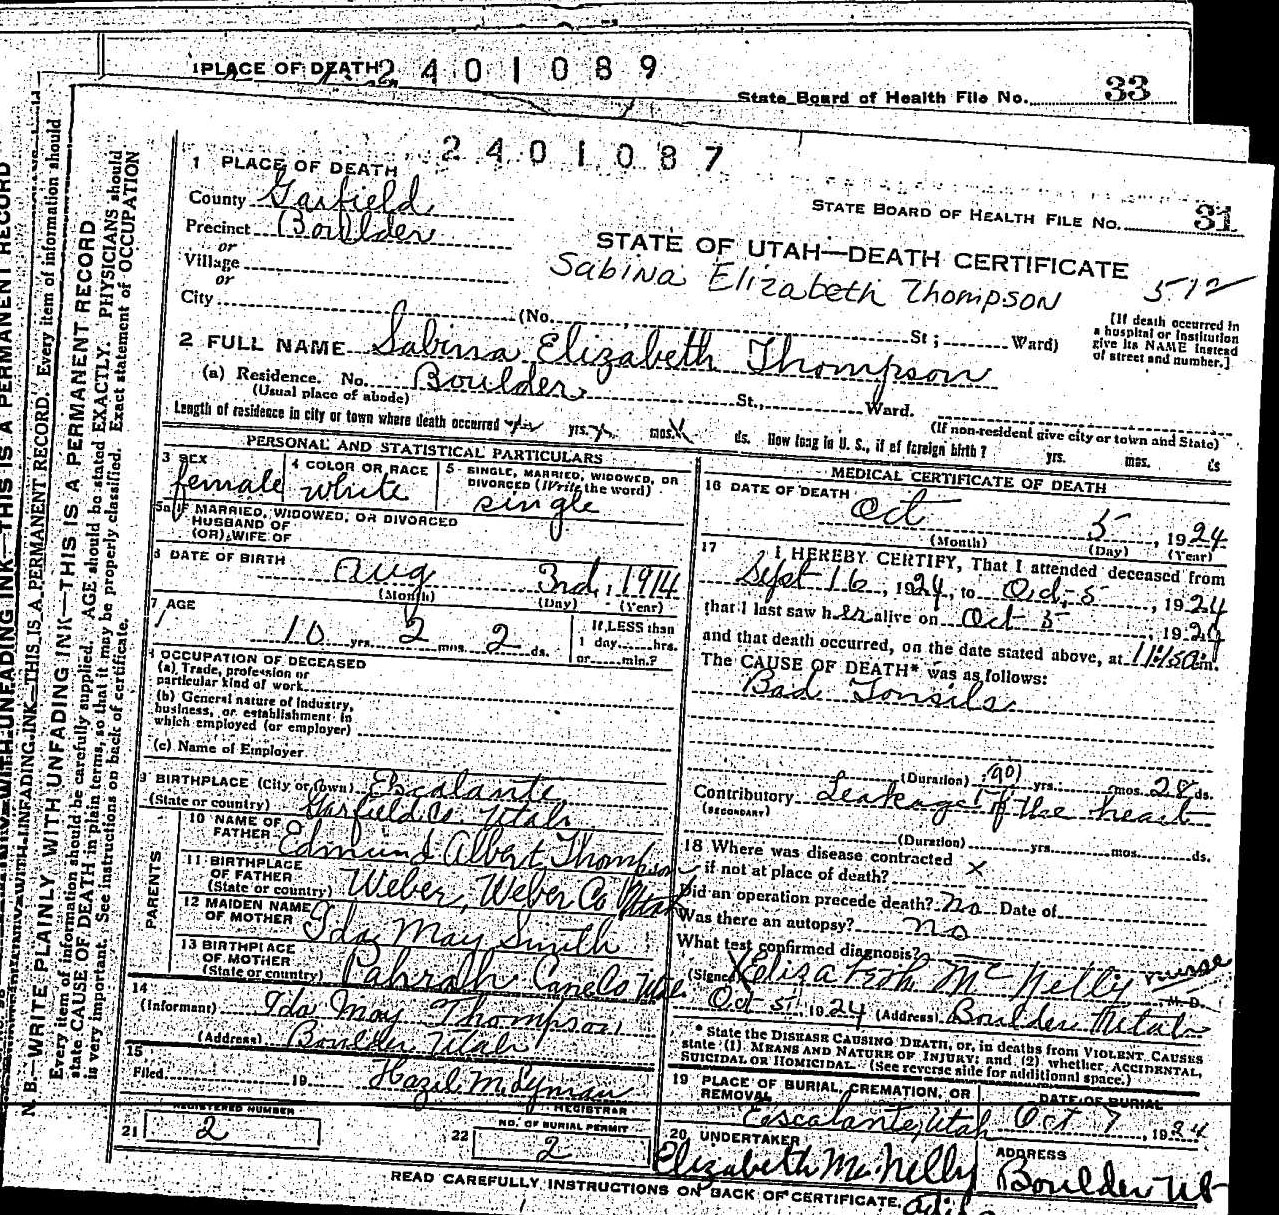 1 PLACE OF DEATH 2401089
State Board of Health File No. 33
2401087
1 PLACE OF DEATH
County Garfield
STATE BOARD OF HEALTH FILE NO. 31
Precinct Boulder
or
Village
or
City
STATE OF UTAH—DEATH CERTIFICATE
Sabina Elizabeth Thompson 512
(No. St; Ward)
[If death occurred in a hospital or institution give its NAME instead of street and number.]
2 FULL NAME Sabina Elizabeth Thompson
(a) Residence. No. Boulder St., Ward.
(Usual place of abode)
(If non-resident give city or town and State)
Length of residence in city or town where death occurred yrs. mos. ds. How long in U. S., if of foreign birth? yrs. mos. ds
PERSONAL AND STATISTICAL PARTICULARS
3 SEX
female
4 COLOR OR RACE
white
5 SINGLE, MARRIED, WIDOWED, OR DIVORCED (Write the word)
single
5a IF MARRIED, WIDOWED, OR DIVORCED
HUSBAND OF
(OR) WIFE OF
6 DATE OF BIRTH
Aug 3rd, 1914
(Month) (Day) (Year)
7 AGE
10 yrs. 2 mos. 2 ds.
If LESS than
1 day hrs.
or min.?
OCCUPATION OF DECEASED
(a) Trade, profession or
particular kind of work
(b) General nature of industry,
business, or establishment in
which employed (or employer)
(c) Name of Employer
9 BIRTHPLACE (City or town) Escalante
(State or country) Garfield Co Utah
PARENTS
10 NAME OF
FATHER Edmund Albert Thompson
11 BIRTHPLACE
OF FATHER
(State or country) Weber, Weber Co Utah
12 MAIDEN NAME
OF MOTHER Ida May Smith
13 BIRTHPLACE
OF MOTHER
(State or country) Pahreah Cane Co Utae
14
(Informant) Ida May Thompson
(Address) Boulder Utah
15
Filed 19 Hazil M Lyman
REGISTRAR
REGISTERED NUMBER
21 2
NO. OF BURIAL PERMIT
22 2
MEDICAL CERTIFICATE OF DEATH
16 DATE OF DEATH
Oct 5, 1924
(Month) (Day) (Year)
17 I HEREBY CERTIFY, That I attended deceased from
Sept 16, 1924, to Oct, 5, 1924
that I last saw her alive on Oct 5, 1924
and that death occurred, on the date stated above, at 11:15 a m.
The CAUSE OF DEATH* was as follows:
Bad Tonsils
(Duration) yrs. mos. 28 ds.
Contributory Leakage of the heart
(SECONDARY)
(Duration) yrs. mos. ds.
18 Where was disease contracted
if not at place of death? x
Did an operation precede death? No Date of
Was there an autopsy? no
What test confirmed diagnosis?
(Signed) X Elizabeth Mc Nelly nurse, M. D.
Oct 5 1924 (Address) Boulder Utah
* State the DISEASE CAUSING DEATH, or, in deaths from VIOLENT CAUSES
state (1) MEANS AND NATURE OF INJURY; and (2) whether ACCIDENTAL,
SUICIDAL OR HOMICIDAL. (See reverse side for additional space.)
19 PLACE OF BURIAL, CREMATION, OR
REMOVAL
Escalante, Utah
DATE OF BURIAL
Oct 7, 1924
20 UNDERTAKER
Elizabeth McNelly
ADDRESS
Boulder Ut
READ CAREFULLY INSTRUCTIONS ON BACK OF CERTIFICATE.
N. B.—WRITE PLAINLY WITH UNFADING INK—THIS IS A PERMANENT RECORD
Every item of information should be carefully supplied. AGE should be stated EXACTLY. PHYSICIANS should
state CAUSE OF DEATH in plain terms, so that it may be properly classified. Exact statement of OCCUPATION
is very important. See instructions on back of certificate.
WITH UNFADING INK—THIS IS A PERMANENT RECORD. Every item of information should
WITH UNFADING INK—THIS IS A PERMANENT RECORD